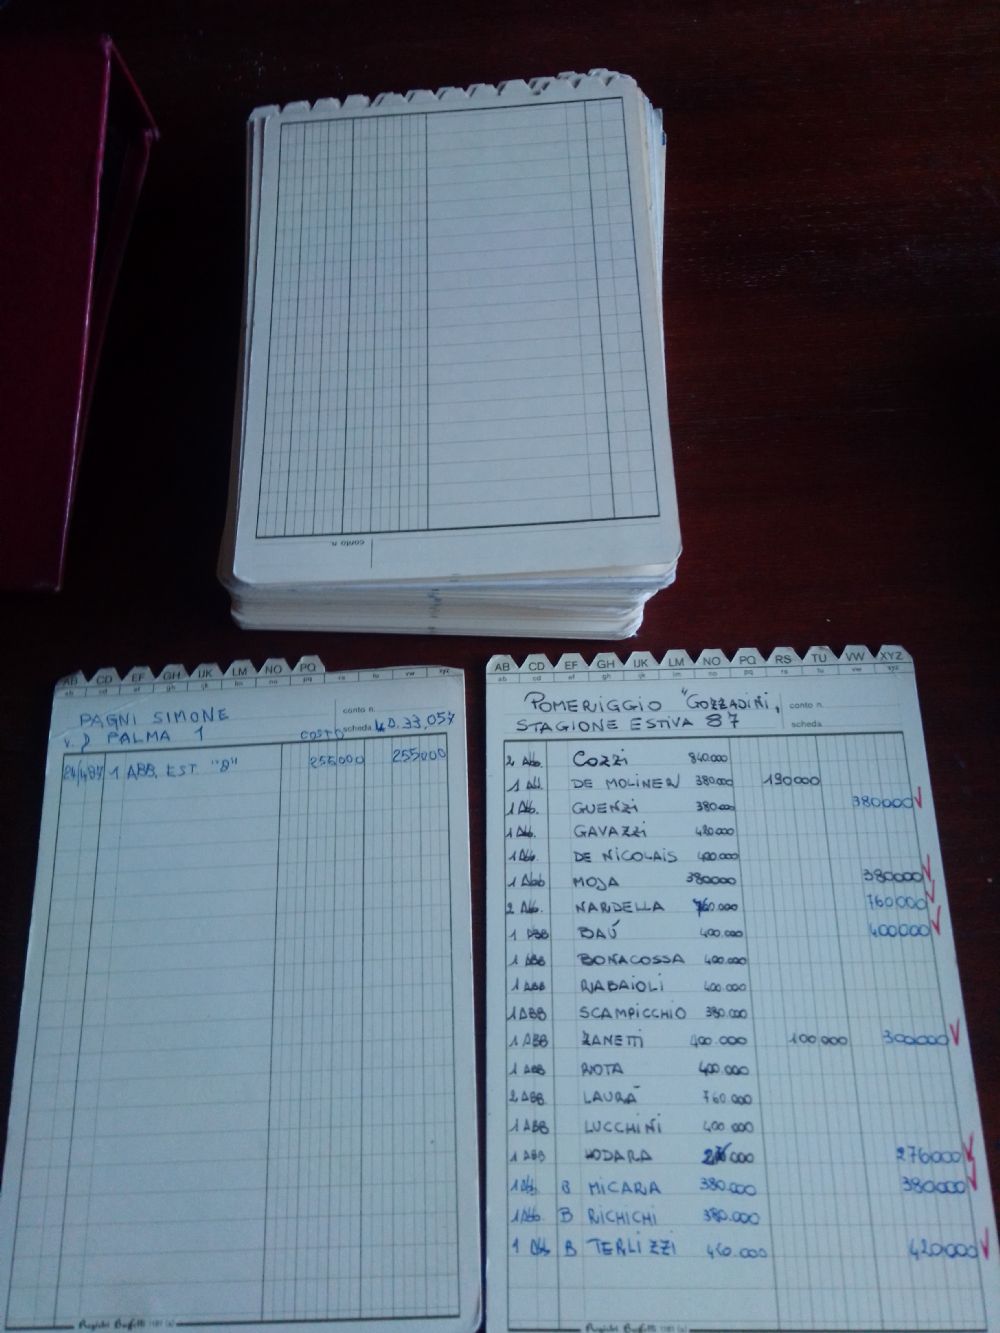 conto n.
AB CD EF GH IJK LM NO PQ
ab cd ef gh ijk lm no pq rs tu vw xyz
PAGNI SIMONE
conto n.
V. PALMA 1
COSTO
scheda
D. 33,057
1 ABB. EST. "B" 255000 255000
AB CD EF GH IJK LM NO PQ RS TU VW XYZ
ab cd ef gh ijk lm no pq rs tu vw xyz
POMERIGGIO "GOZZADINI,
conto n.
STAGIONE ESTIVA 87
scheda
2 Abb. COZZI 840.000
1 Abb. DE MOLINER 380.000 190000
1 Abb. GUENZI 380.000 380000
1 Abb. GAVAZZI 420.000
1 Abb. DE NICOLAIS 400.000
1 Abb MOJA 380000 380000
2 Abb. NARDELLA 760.000 760000
1 ABB BAÚ 400.000 400000
1 ABB BONACOSSA 400.000
1 ABB RABAIOLI 400.000
1 ABB SCAMPICCHIO 380.000
1 ABB ZANETTI 400.000 100000 300000
1 ABB ROTA 400.000
2 ABB LAURÀ 760.000
1 ABB LUCCHINI 400 000
1 ABB VODARA 276000
1 Abb. B MICARA 380.000 380000
1 Abb. B RICHICHI 380.000
1 Abb B TERLIZZI 420000